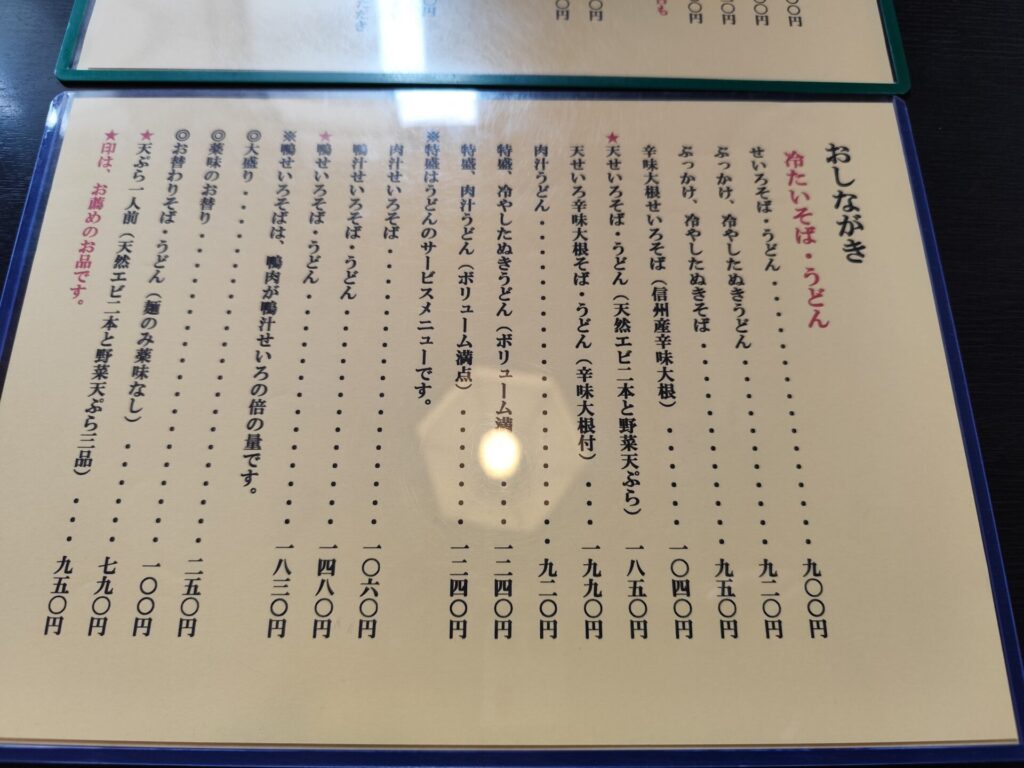 おしながき
冷たいそば・うどん
せいろそば・うどん・・・・・・・・・・・・・・九〇〇円
ぶっかけ、冷やしたぬきうどん・・・・・・・・・・九二〇円
ぶっかけ、冷やしたぬきそば・・・・・・・・・・・九五〇円
辛味大根せいろそば（信州産辛味大根）・・・・・・一〇四〇円
★天せいろそば・うどん（天然エビ二本と野菜天ぷら）一八五〇円
天せいろ辛味大根そば・うどん（辛味大根付）・・・一九九〇円
肉汁うどん・・・・・・・・・・・・・・・・・・九二〇円
特盛、冷やしたぬきうどん（ボリューム満・・一二四〇円
特盛、肉汁うどん（ボリューム満点）・・・・・・・一二四〇円
※特盛はうどんのサービスメニューです。
肉汁せいろそば・・・・・・・・・・・・・・・・一〇六〇円
鴨汁せいろそば・うどん・・・・・・・・・・・・一四八〇円
★鴨せいろそば・うどん・・・・・・・・・・・・・一八三〇円
※鴨せいろそばは、鴨肉が鴨汁せいろの倍の量です。
◎大盛り・・・・・・・・・・・・・・・・・・・二五〇円
◎薬味のお替り・・・・・・・・・・・・・・・・一〇〇円
◎お替わりそば・うどん（麺のみ薬味なし）・・・・・七九〇円
★天ぷら一人前（天然エビ二本と野菜天ぷら三品）・・・九五〇円
★印は、お薦めのお品です。